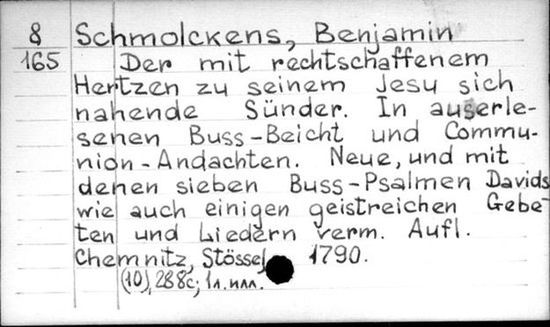 8 Schmolckens, Benjamin
165 Der mit rechtschaffenem
Hertzen zu seinem Jesu sich
nahende Sünder. In auserle-
senen Buss-Beicht und Commu-
nion-Andachten. Neue, und mit
denen sieben Buss-Psalmen Davids
wie auch einigen geistreichen Gebe-
ten und Liedern verm. Aufl.
Chemnitz, Stössel 1790.
(10), 288c; 1л. илл.